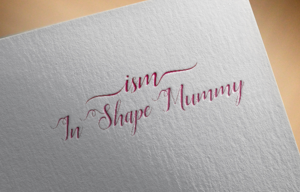 ism
In Shape Mummy